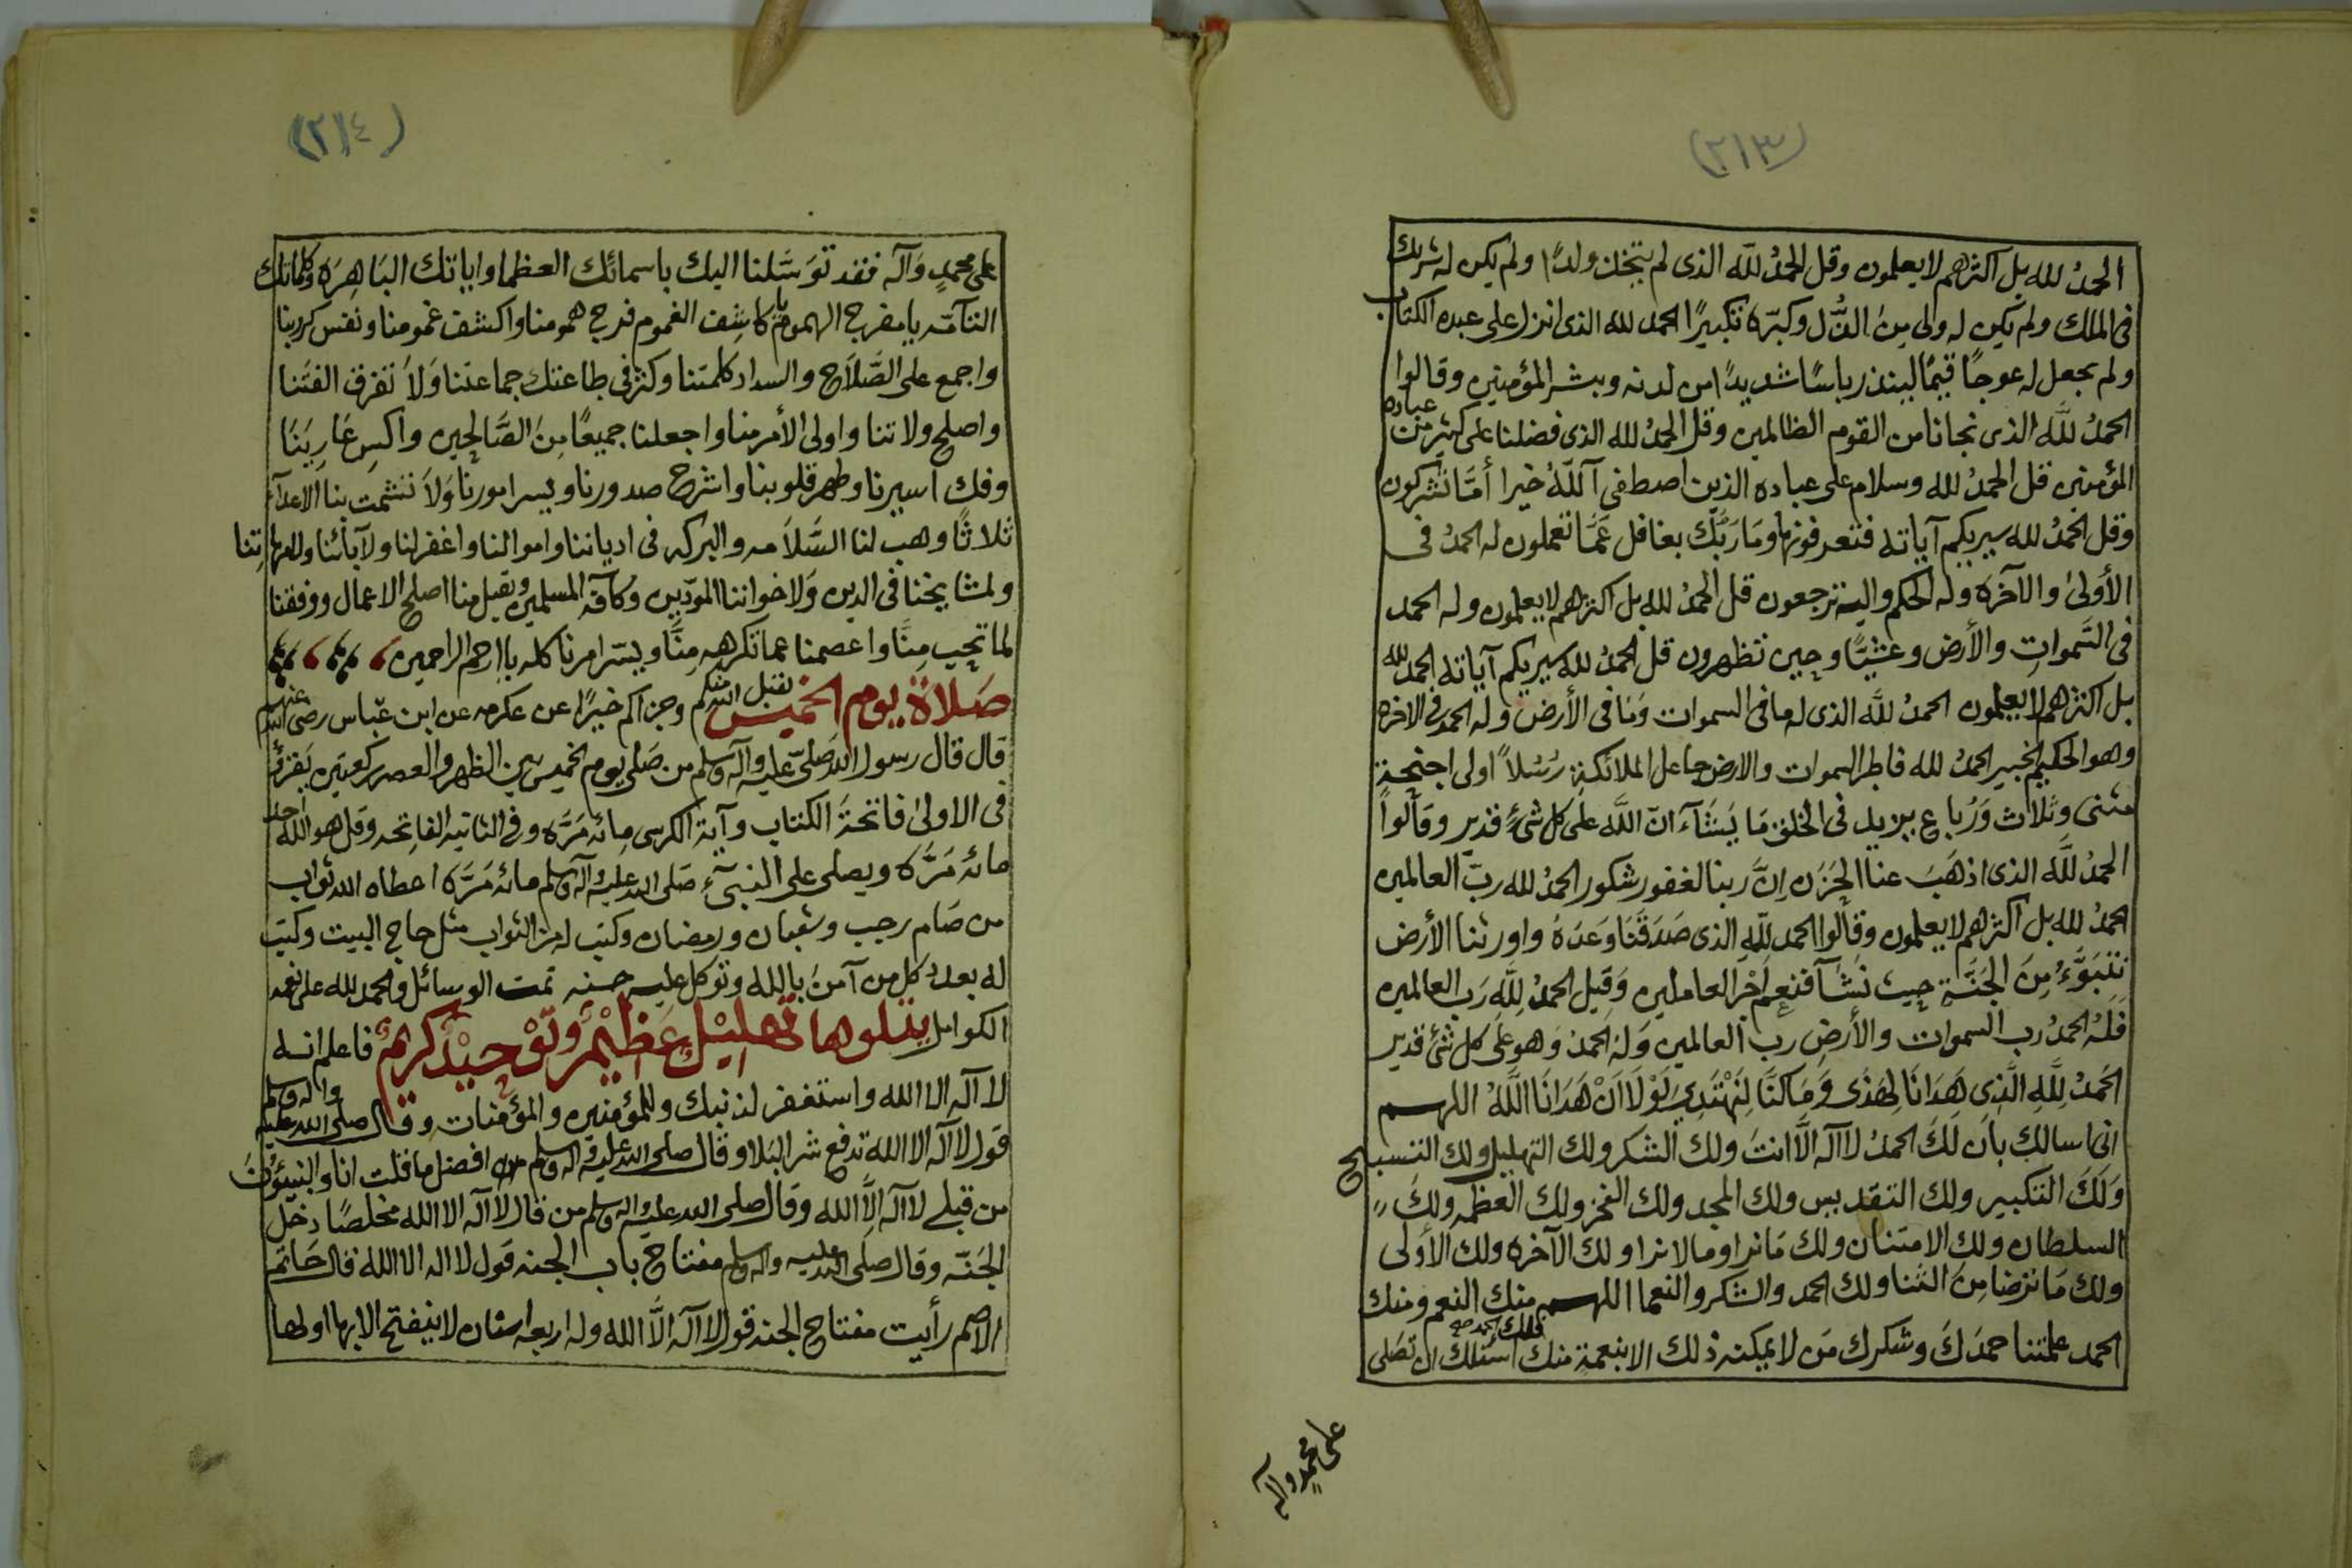 (٢١٣)
الحمدُ لله بل اكثرهم لا يعلمون وقل الحمدُ للّه الذى لم يتخذ ولدًا ولم يكن له شريك
فى الملك ولم يكن له ولى مِنَ الذُّل وكبّره تكبيرًا الحمد لله الذى انزل على عبده الكتاب
ولم يجعل له عوجًا قيّمًا لينذر باسًا شديدًا من لدنه ويبشر المؤمنين وقالوا
الحمدُ للَّه الذى نجانا من القوم الظالمين وقل الحمدُ لله الذى فضلنا على كثير من عباده
المؤمنين قل الحمدُ لله وسلام على عباده الذين اصطفى آللّهُ خيرا أمّا تشركون
وقل الحمدُ لله سيريكم آياته فتعرفونها وَمَا رَبُّك بغافل عَمَّا تعملون له الحمدُ فى
الأولىٰ والآخره وله الحكم واليه ترجعون قل الحمدُ لله بل اكثرهم لا يعلمون وله الحمد
فى السَّمواتِ والأرض وعشيًّا وحين تظهرون قل الحمدُ لله سيريكم آياته الحمد لله
بل اكثرهم لا يعلمون الحمدُ للَّه الذى له ما فى السموات وَمَا فى الأرض وله الحمد فى الاخره
وهو الحكيم الخبير الحمدُ لله فاطر السموات والارض جاعل الملائكةِ رُسُلاً اولى اجنحةٍ
مثنى وثلاث وَرُباع يزيد فى الخلق مَا يَشَآء انّ اللَّه على كل شىءٍ قدير وقالُواْ
الحمدُ للَّه الذى اذهَبَ عنا الحَزَن اِنَّ ربنا لغفور شكور الحمدُ لله ربّ العالمين
الحمدُ لله بل اكثرهم لا يعلمون وقالُوا الحمد للّهِ الذى صَدَقَنَا وَعَدَهُ واورثنا الأرض
نتبَوَّءُ مِنَ الجَنَّةِ حيث نَشَآ فنعم اَجْر العاملين وَقيل الحمدُ لِلّهِ رَب العالمين
فَلِلّهِ الحمدُ رب السموات والأرضِ رب العالمين وَلهُ الحمدُ وَهو عَلى كل شئ قدير
الحَمدُ لِلَّهِ الَّذِى هَدَانَا لِهَذَى وَمَا كنَّا لِنَهْتَدِىَ لَوْلَا اَنْ هَدَانَا اللَّهُ اللهم
انى اسالك بان لَكَ الحمدُ لا آله الَّا انتَ ولك الشكر ولك التهليل ولك التسبيح
وَلَكَ التكبير ولك التقديس ولك المجد ولك الفخر ولك العظمه ولكَ
السلطان ولك الامتنان ولك مَا نرا وما لا نرا ولك الآخره ولك الأولى
ولك مَا ترضا مِنَ الثنا ولك الحمد والشكر والنعما اللهم منك النعم ومنك
الحمد علمتنا حمدَكَ وشكرك مَن لا يمكنه ذلك الا بنعمةٍ منك فلك الحمد أسئلك ان تصَلى
على محمدٍ وآله
(٢١٤)
على محمدٍ وَآله فقد توَسَّلنا اليك باسمائك العظما واياتك البَاهِرَه وكلماتك
التآمّه يا مفرج الهموم يا كاشِف الغموم فرج همومنا واكشف غمومنا ونفس كربنا
واجمع على الصَّلَاح والسداد كلمتنا وكثر فى طاعتك جماعتنا وَلاَ تفرق الفتنا
واصلح ولاتنا واولى الأمر منا واجعلنا جميعًا مِنَ الصَّالحين واكسِ عَارِيَنَا
وفك اسيرنا وطهر قلوبنا واشرح صدورنا ويسر امورنا وَلاَ تشمت بنا الاعدآء
ثلاثًا وهب لنا السَّلاَمه والبركه فى ادياننا واموالنا واغفر لنا ولآبائنا ولامهاتِنا
ولمشايخنا فى الدين وَلاخواننا المودّين وكآفّة المسلمين وتقبل منا اصلح الاعمال ووفقنا
لما تحب مِنَّا واعصمنا عما تكرههِ مِنَّا ويسّر امرنا كله يا ارحم الراحمين
صَلاَة يوم الخميس تقبل الله منكم وجزاكم خيرًا عن عكرمه عن ابن عبّاس رضى الله عنهم
قال قال رسول الله صَلىّ عليه وآله وسلم من صَلى يوم الخميس بين الظهر والعصر ركعتين يَقرؤ
فى الاولى فاتحةَ الكتاب وآية الكرسى مِائه مَرَّه وفى الثانيه الفاتحه وقل هو الله احد
مائه مَرَّه ويصلى على النبىّءِ صَلى الله عليه وآله وسلم مائه مَرَّه اعطاه الله ثواب
من صَام رجب وشعبان ورمضان وكتب له من الثواب مثل حاج البيت وكتب
له بعدد كل من آمنَ بالله وتوكل عليه حسنه تمت الوسائل والحمد لله على نعمه
الكوامل يتلوها تهليْلٌ عَظيْمٌ وتَوْحيْدٌ كريمٌ فاعلم انه
لا آله الا الله واستغفر لذنبك وللمؤمنين والمؤمنات وقال صلى الله عليه واله وسلم
قول لا آله الا الله تدفع شر البَلا وقال صلى الله عليه واله وسلم افضل ما قلت انا والنبيئونَ
من قبلى لا آله اِلَّا الله وَقال صلى الله عليه واله وسلم من قال لا آله الا الله مخلصًا دخل
الجَنّه وقال صَلى الله عليه واله وسلم مفتاح باب الجنه قول لا اله الا الله قال حَاتم
الاصم رأيت مفتاح الجنه قول لا آله الَّا الله وله اربعه اسنان لا ينفتح الا بها اولها